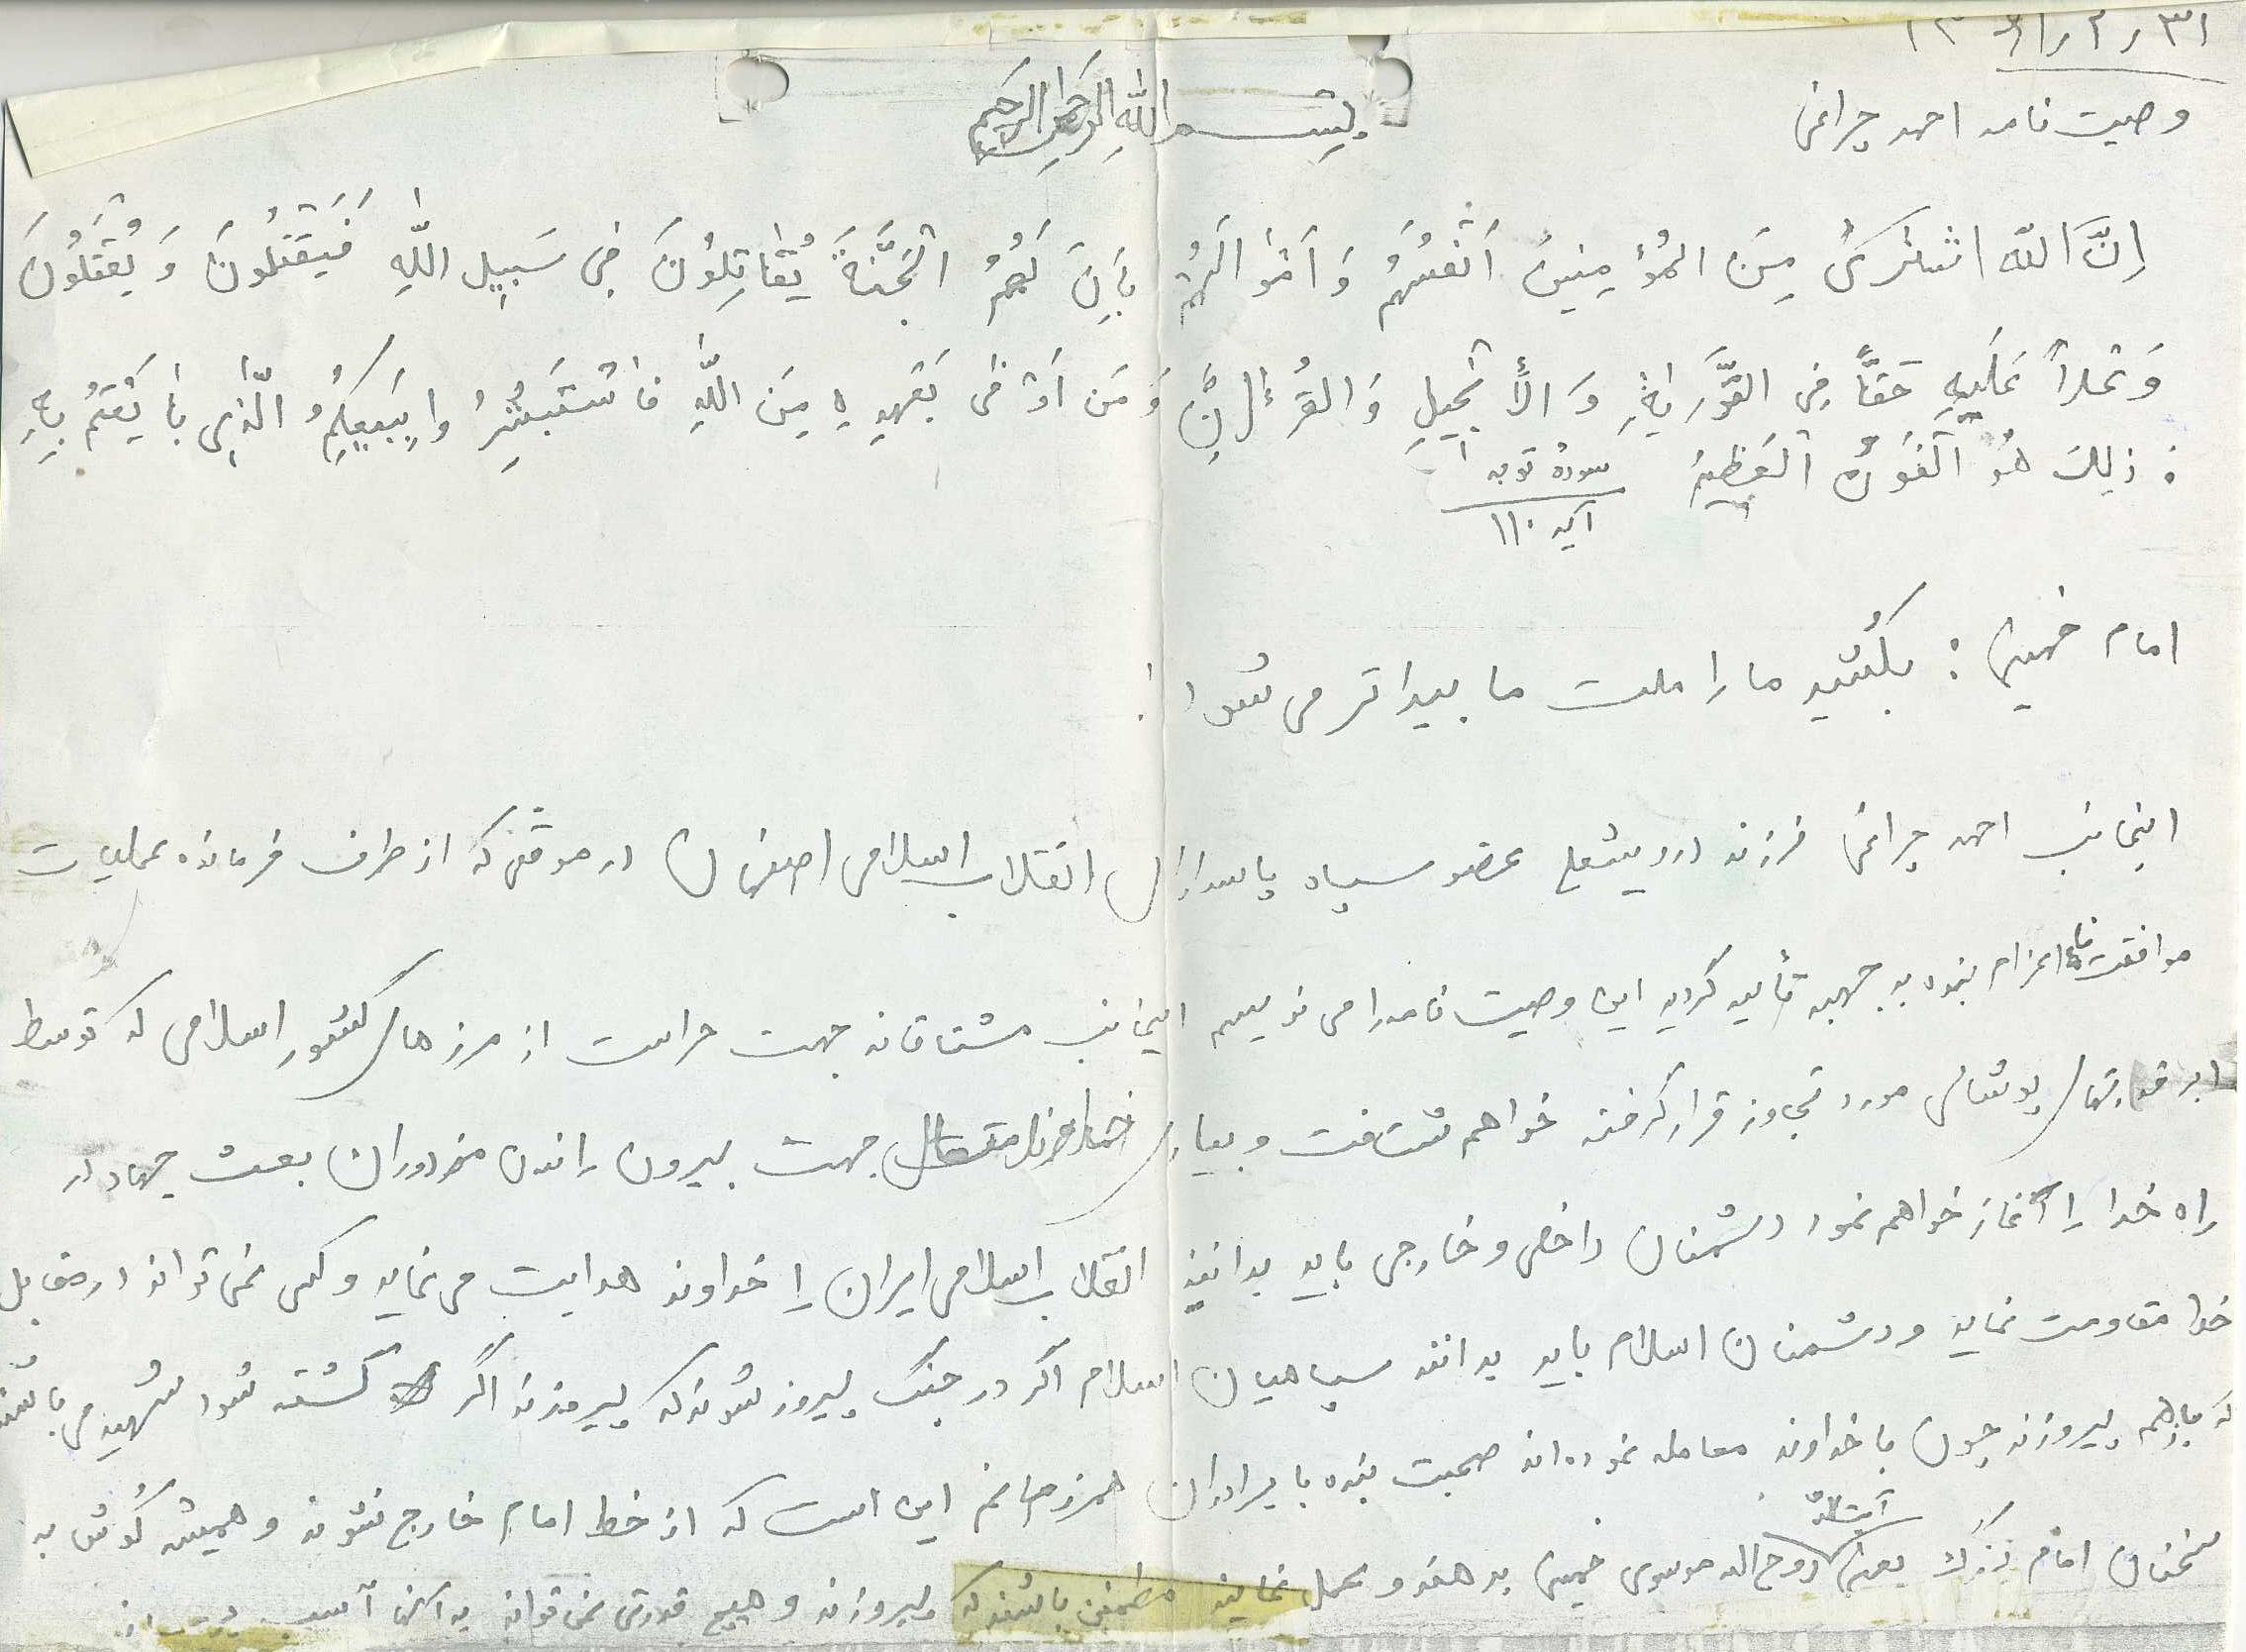 وصیت نامه احمد چراغی
بِسمِ اللهِ الرَّحمنِ الرَّحیمِ
اِنَّ اللهَ اشتَرَیٰ مِنَ المُؤمِنینَ اَنفُسَهُم وَ اَموٰالَهُم بِاَنَّ لَهُمُ الجَنَّةَ یُقٰاتِلُونَ فِی سَبیلِ اللهِ فَیَقتُلُونَ وَ یُقتَلُونَ
وَعداً عَلَیهِ حَقّاً فِی التَّوریٰةِ وَ الاِنجیلِ وَ القُرءانِ وَ مَن اَوفی بَعَهدِهِ مِنَ اللهِ فَاستَبشِرُوا بِبَیعِکُمُ الَّذِی بٰایَعتُم بِهِ
: ذٰلِکَ هُوَ الفَوزُ العَظیمُ سوره توبه
آیه ۱۱۰
امام خمینی : بکُشید ما را ملت ما بیدارتر می شود !
اینجانب احمد چراغی فرزند درویشعلی عضو سپاه پاسداران انقلاب اسلامی اصفهان در موقعی که از طرف فرمانده عملیات
موافقت نامه اعزام بنده به جبهه تأیید گردید این وصیت نامه را می نویسم اینجانب مشتاقانه جهت حراست از مرزهای کشور اسلامی که توسط
ابرقدرتهای پوشالی مورد تجاوز قرار گرفته خواهم شتافت و بیاری خداوند متعال جهت بیرون راندن مزدوران بعث جهاد در
راه خدا را آغاز خواهم نمود دشمنان داخلی و خارجی باید بدانند انقلاب اسلامی ایران را خداوند هدایت می نماید و کسی نمی تواند در مقابل
خدا مقاومت نماید و دشمنان اسلام باید بدانند سپاهیان اسلام اگر در جنگ پیروز شوند که پیروزند اگر کشته شود شهید می باشند
که بازهم پیروزند چون با خداوند معامله نموده اند صحبت بنده با برادران همرزم‌انم این است که از خط امام خارج نشوند و همیشه گوش به
سخنان امام بزرگ یعنی آیت الله روح الله موسوی خمینی بدهند و عمل نمایند مطمئن باشند که پیروزند و هیچ قدرتی نمی تواند به آنها آسیب